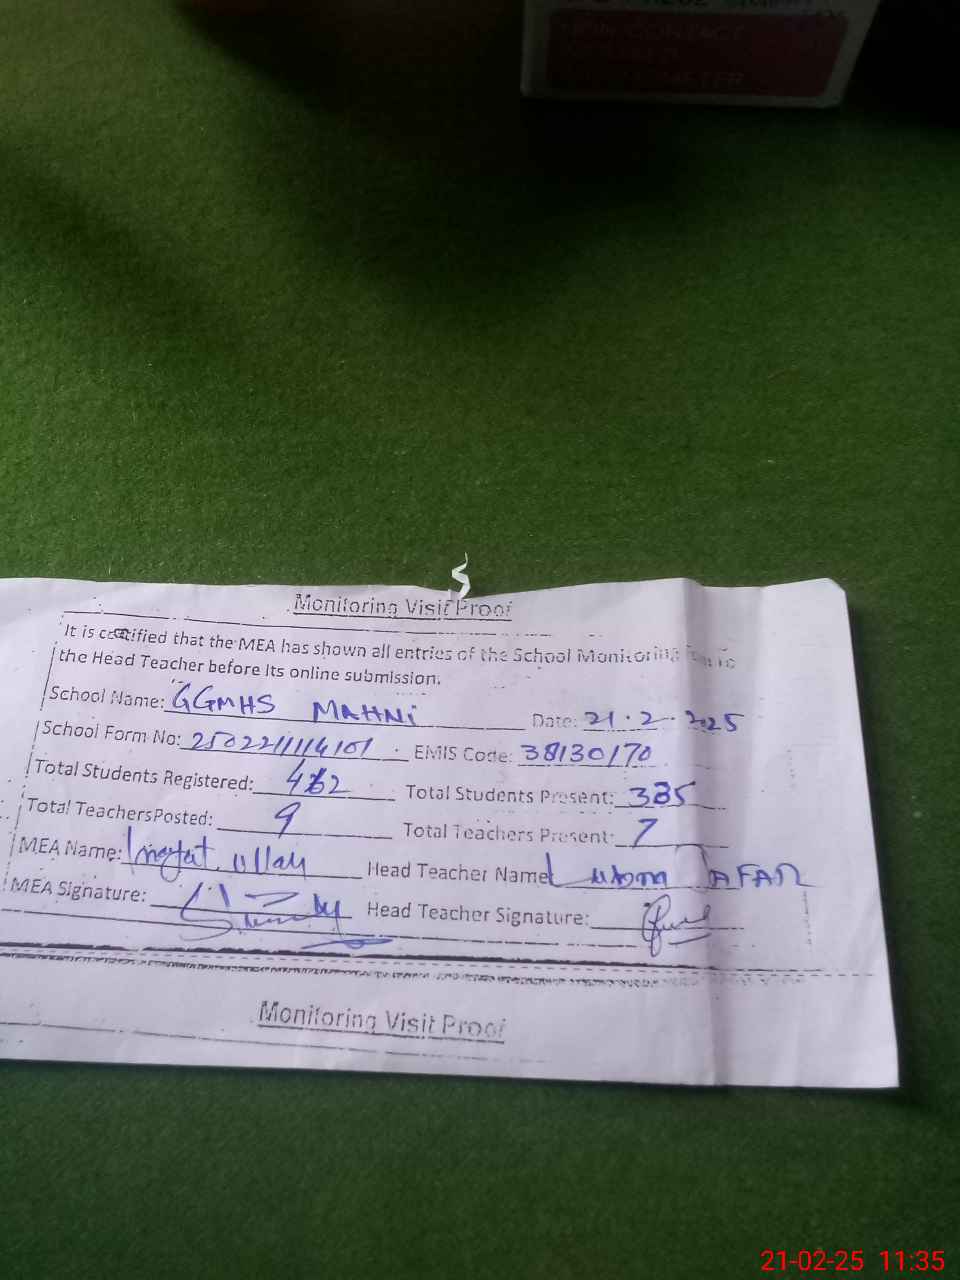 NON CONTACT
Monitoring Visit Proof
It is certified that the MEA has shown all entries of the School Monitoring Form to
the Head Teacher before Its online submission.
School Name: GGMHS MAHNI Date: 21.2.2025
School Form No: EMIS Code: 38130170
Total Students Registered: Total Students Present: 385
Total Teachers Posted: 9 Total Teachers Present: 7
MEA Name: Inayat ullah Head Teacher Name:
MEA Signature: Head Teacher Signature:
Monitoring Visit Proof
21-02-25 11:35